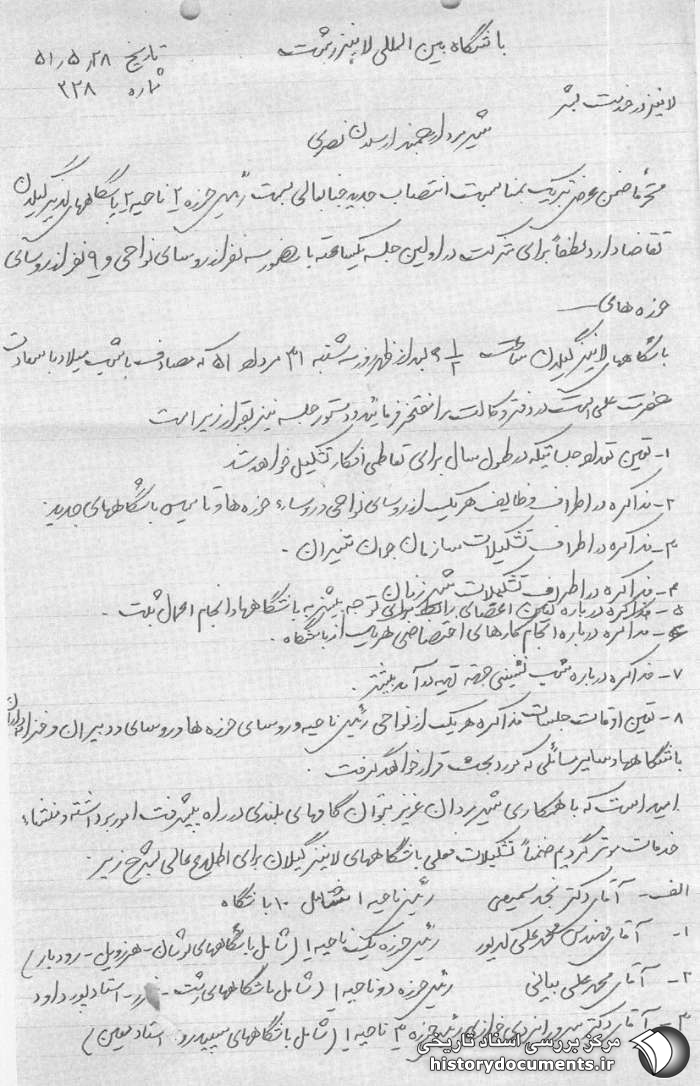 باشگاه بین المللی لاینز رشت
تاریخ ۵۱٫۵٫۲۸
شماره ۲۲۸
لاینز در خدمت بشر
شیرمرد ارجمند ارسلان نصری
محترماً ضمن عرض تبریک بمناسبت انتصاب جدید جنابعالی بسمت رئیس حوزه ۲ ناحیه ۲ باشگاههای لاینز گیلان
تقاضا دارد لطفاً برای شرکت در اولین جلسه یکساعته با حضور سه نفر از روسای نواحی و ۹ نفر از روسای
حوزه های
باشگاههای لاینز گیلان ساعت ۶ ۱/۲ بعد از ظهر روز سه شنبه ۳۱ مرداد ۵۱ که مصادف با شب میلاد با سعادت
حضرت علی است در دفتر وکالت مرا مفتخر فرمائید و دستور جلسه نیز بقرار زیر است
۱- تعیین تعداد جلساتیکه در طول سال برای تعاطی افکار تشکیل خواهد شد
۲- مذاکره در اطراف وظایف هر یک از روسای نواحی و روساء حوزه ها و تاسیس باشگاههای جدید
۳- مذاکره در اطراف تشکیلات سازمان جوان شیران .
۴- مذاکره در اطراف تشکیلات شیر زنان
۵- مذاکره درباره تعیین اعضای رابط برای توجه بیشتر به باشگاهها و انجام اعمال مثبت .
۶- مذاکره درباره انجام کارهای اختصاصی هر یک از باشگاه .
۷- مذاکره درباره شب نشینی جهت تهیه درآمد بیشتر .
۸- تعیین اوقات جلسات مذاکره هر یک از نواحی رئیس ناحیه و روسای حوزه ها و روسای و دبیران و خزانه داران
باشگاهها و سایر مسائلی که مورد بحث قرار خواهد گرفت .
امید است که با همکاری شیرمردان عزیز بتوان گامهای بلندی در راه پیشرفت امور برداشته و منشاء
خدمات موثر گردیم ضمناً تشکیلات فعلی باشگاههای لاینز گیلان برای اطلاع عالی بشرح زیر
الف- آقای دکتر محمد سمیعی رئیس ناحیه ۱ شامل ۱۰ باشگاه
۱- آقای مهندس محمد علی کدیور رئیس حوزه یک ناحیه ۱ (شامل باشگاههای لوشان - هرزویل - رودبار)
۲- آقای محمد علی بیانی رئیس حوزه دو ناحیه ۱ (شامل باشگاههای رشت - - استاد پور داود
۳- آقای دکتر رئیس حوزه ۳ ناحیه ۱ (شامل باشگاههای سپیدرود استاد معین)
مرکز بررسی اسناد تاریخی
historydocuments.ir